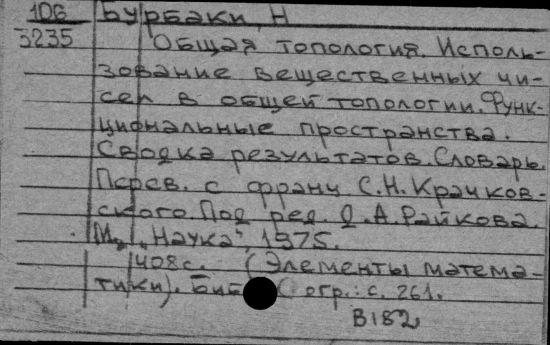 106 Бурбаки, Н
3235 Общая топология. Исполь-
зование вещественных чи-
сел в общей топологии. Функ-
циональные пространства.
Сводка результатов. Словарь.
Перев. с франц С.Н. Крачков-
ского. Под ред. Д.А. Райкова.
М., „Наука", 1975.
408с. (Элементы матема-
тики). Биб огр.: с. 261.
В182